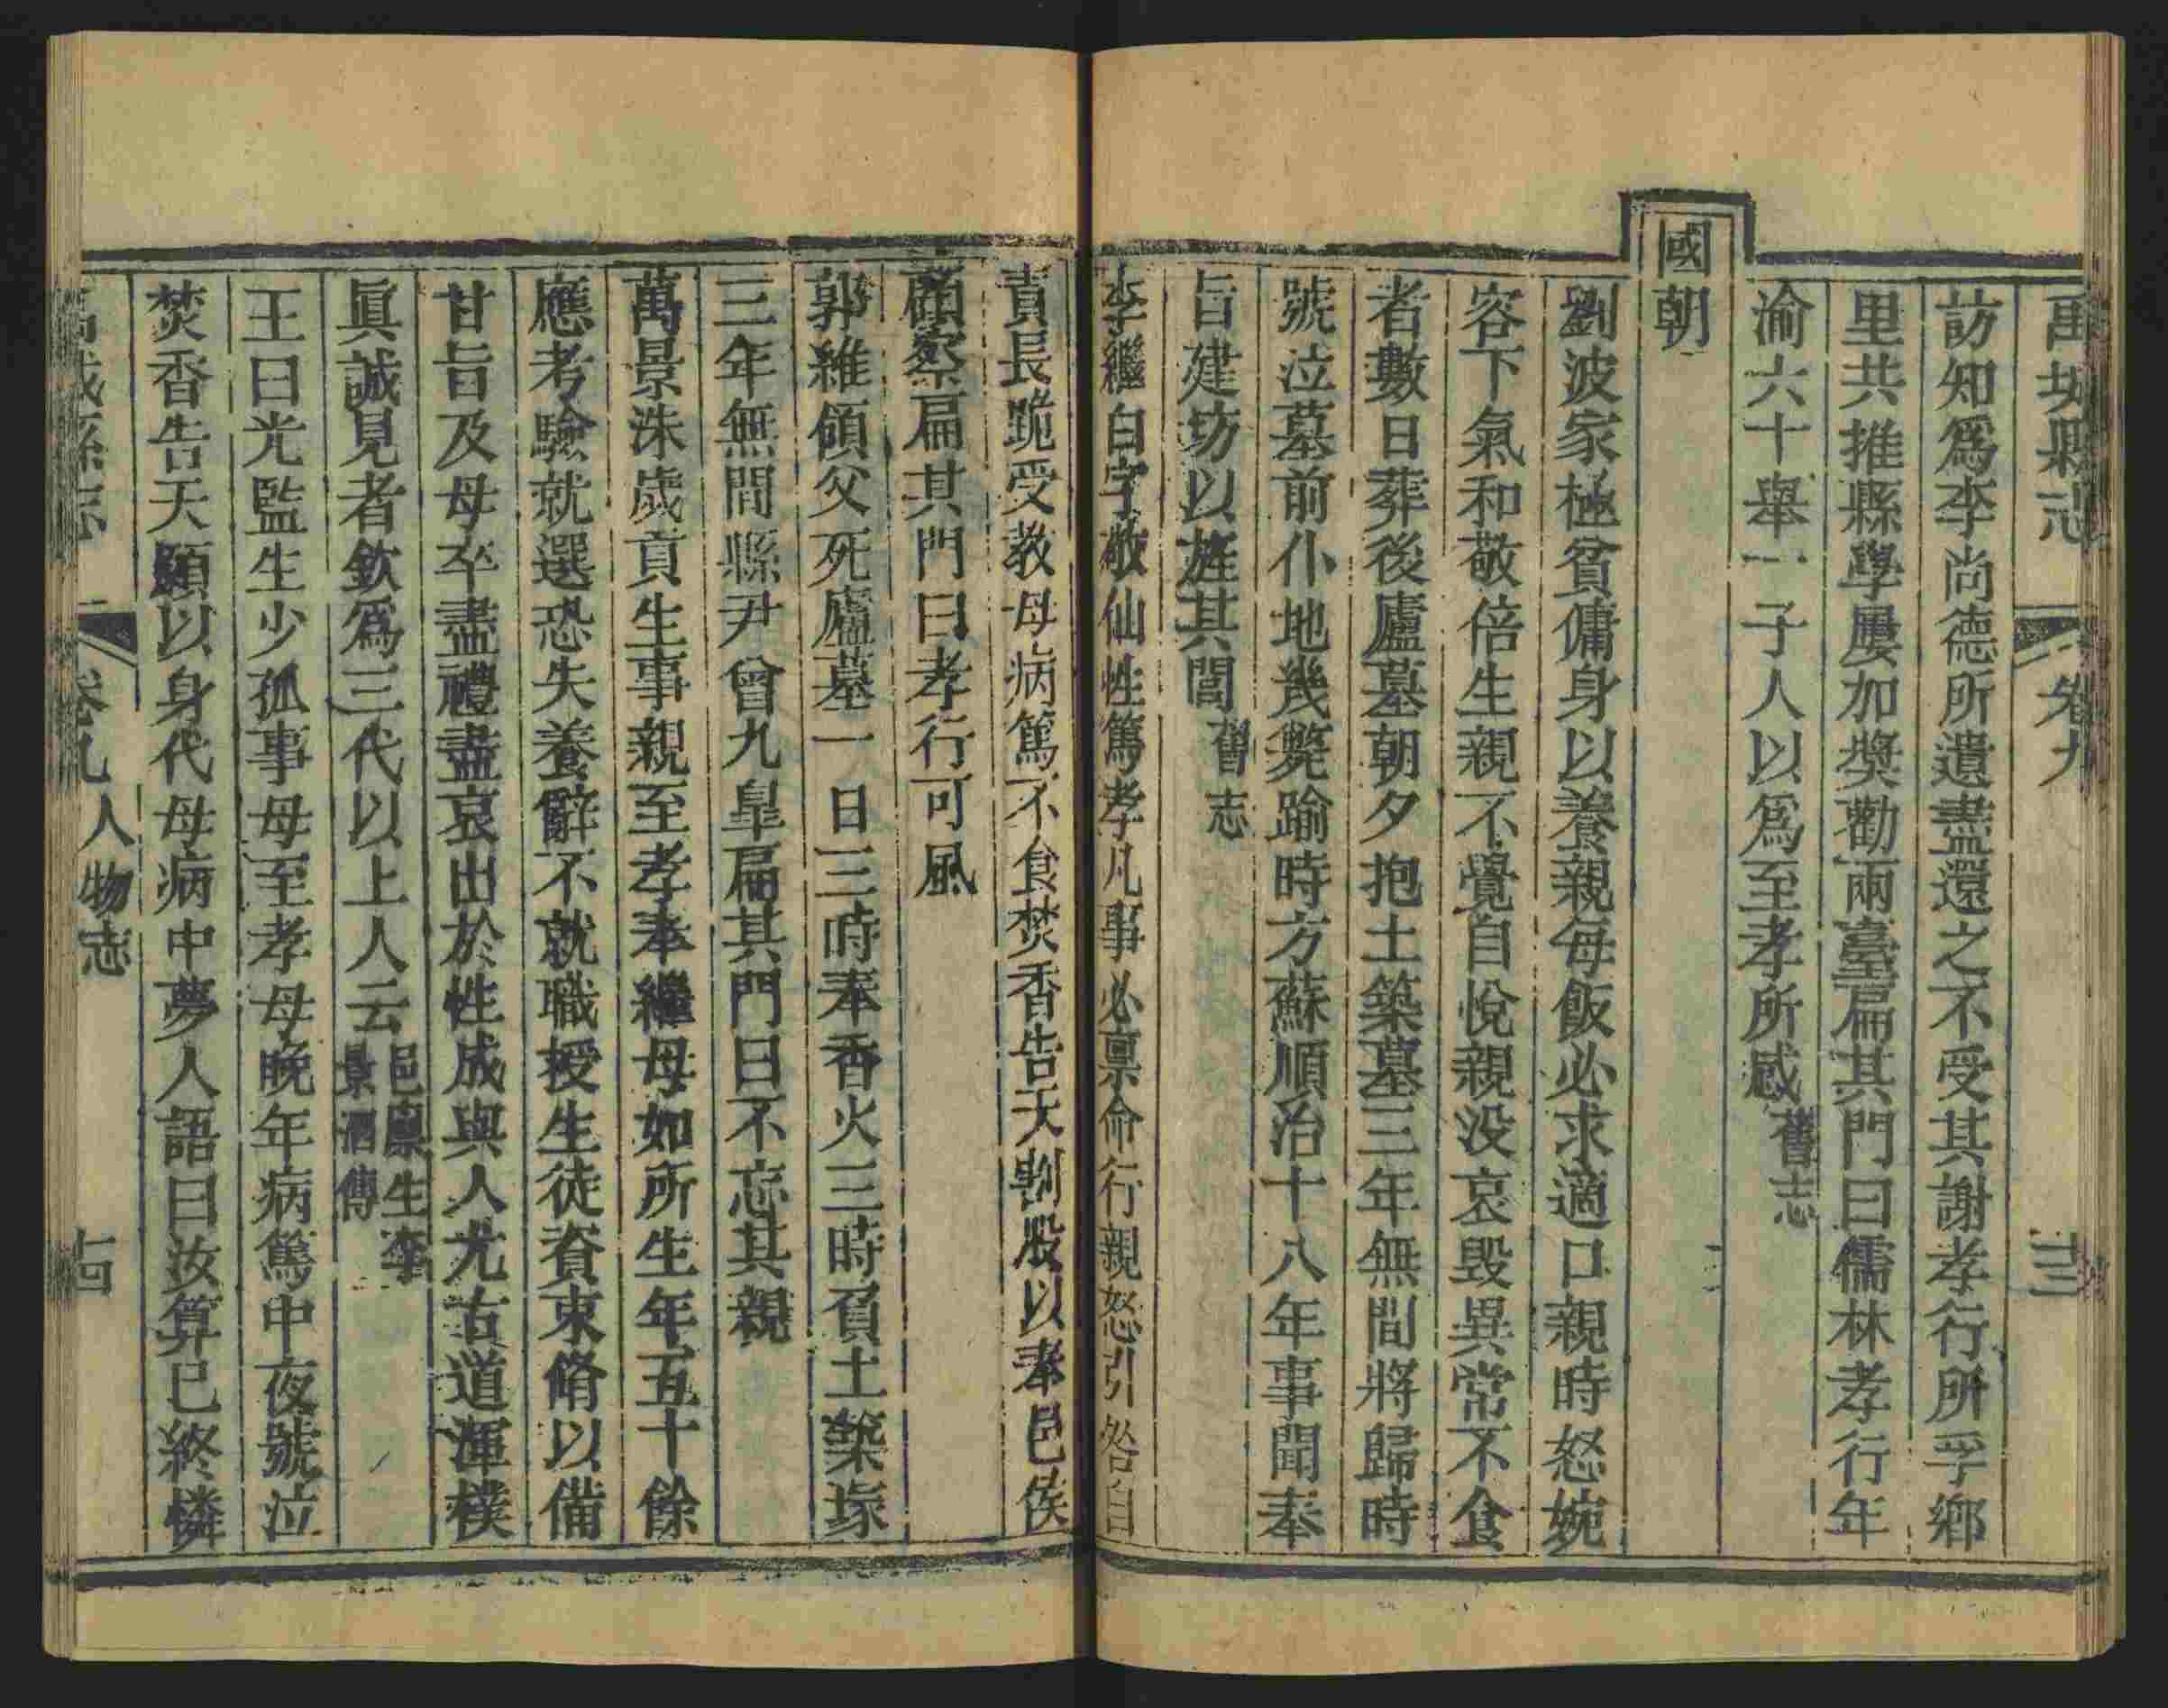 禹城縣志
卷九
十三
訪知爲李尚德所遺盡還之不受其謝孝行所孚鄉
里共推縣學屢加奬勸兩臺扁其門曰儒林孝行年
渝六十舉一子人以爲至孝所感舊志
國朝
劉波家極貧傭身以養親每飯必求適口親時怒婉
容下氣和敬倍生親不覺自悅親没哀毀異常不食
者數日葬後廬墓朝夕抱土築墓三年無間將歸時
號泣墓前仆地幾斃踰時方蘇順治十八年事聞奉
旨建坊以旌其閭舊志
李繼白字敬仙性篤孝凡事必禀命行親怒引咎自
責長跪受教母病篤不食焚香告天割股以奉邑侯
顧察扁其門曰孝行可風
郭維領父死廬墓一日三時奉香火三時負土築塚
三年無間縣尹曾九皐扁其門曰不忘其親
萬景洙歲貢生事親至孝奉繼母如所生年五十餘
應考驗就選恐失養辭不就職授生徒資束脩以備
甘旨及母卒盡禮盡哀出於性成與人尤古道渾樸
眞誠見者欽爲三代以上人云邑廩生李景泗傳
王曰光監生少孤事母至孝母晚年病篤中夜號泣
焚香告天願以身代母病中夢人語曰汝算已終憐
禹城縣志
卷九人物志
十四